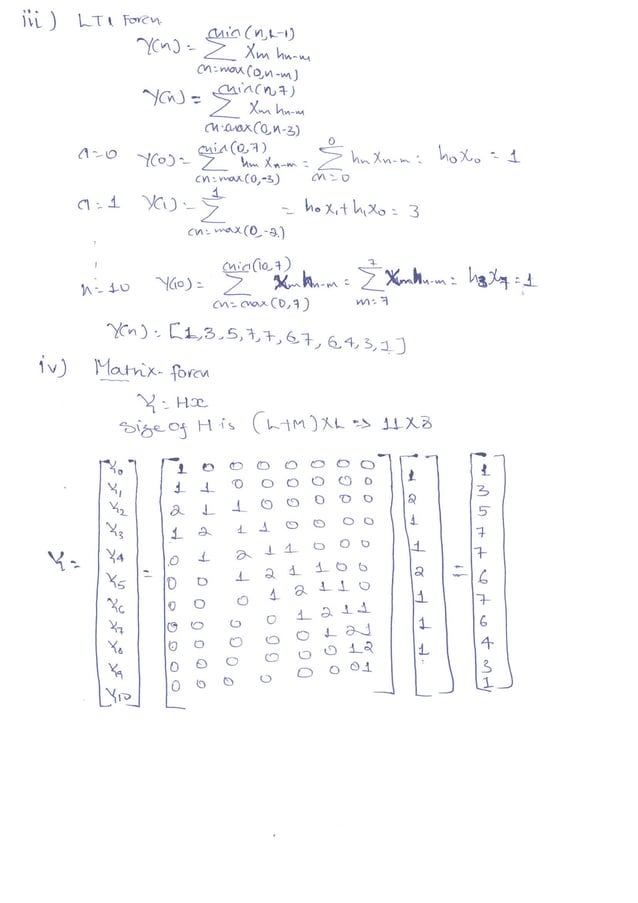 iii) LTI Form
Y(n) = Σ_{m=max(0,n-m)}^{min(n,L-1)} x_m h_{n-m}
Y(n) = Σ_{m=max(0,n-3)}^{min(n,7)} x_m h_{n-m}
n=0 Y(0) = Σ_{m=max(0,-3)}^{min(0,7)} h_m x_{n-m} = Σ_{m=0}^{0} h_m x_{n-m} = h_0 x_0 = 1
n=1 Y(1) = Σ_{m=max(0,-2)}^{1} = h_0 x_1 + h_1 x_0 = 3
n=10 Y(10) = Σ_{m=max(0,7)}^{min(10,7)} x_m h_{n-m} = Σ_{m=7}^{7} x_m h_{n-m} = h_3 x_7 = 1
Y(n) = [1,3,5,7,7,6,7,6,4,3,1]
iv) Matrix-form
Y = Hx
Size of H is (L+M)×L => 11×8
Y = [ Y0 ] = [ 1 0 0 0 0 0 0 0 ] [ 1 ] = [ 1 ]
Y1 1 1 0 0 0 0 0 0 2 3
Y2 2 1 1 0 0 0 0 0 1 5
Y3 1 2 1 1 0 0 0 0 1 7
Y4 0 1 2 1 1 0 0 0 2 7
Y5 0 0 1 2 1 1 0 0 1 6
Y6 0 0 0 1 2 1 1 0 1 7
Y7 0 0 0 0 1 2 1 1 1 6
Y8 0 0 0 0 0 1 2 1 4
Y9 0 0 0 0 0 0 1 2 3
Y10 0 0 0 0 0 0 0 1 1